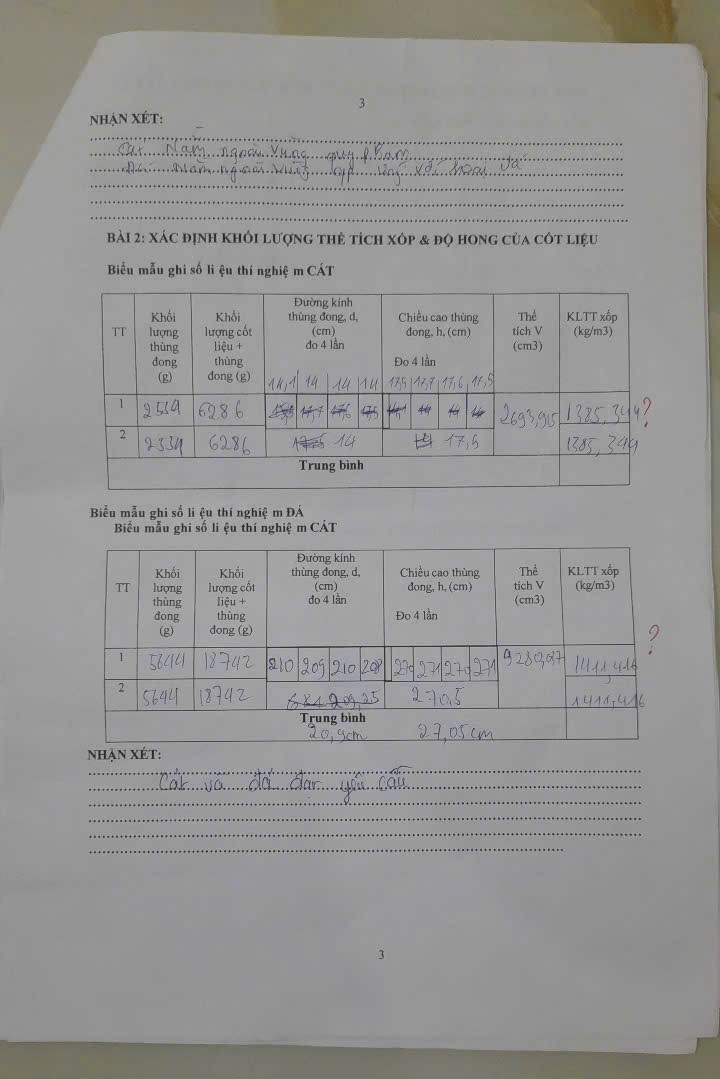 3
NHẬN XÉT:
Cát Nằm ngoài vùng quy phạm
Đá nằm ngoài vùng
BÀI 2: XÁC ĐỊNH KHỐI LƯỢNG THỂ TÍCH XỐP & ĐỘ HONG CỦA CỐT LIỆU
Biểu mẫu ghi số li ệu thí nghiệ m CÁT
TT Khối lượng thùng đong (g) Khối lượng cốt liệu + thùng đong (g) Đường kính thùng đong, d, (cm) đo 4 lần Chiều cao thùng đong, h, (cm) Đo 4 lần Thể tích V (cm3) KLTT xốp (kg/m3)
14,1 14 14 14 17,5 17,7 17,6 17,5
1 2554 6286 2693,915 1385,344 ?
2 2554 6286 14 17,5 1385,344
Trung bình
Biểu mẫu ghi số li ệu thí nghiệ m ĐÁ
Biểu mẫu ghi số li ệu thí nghiệ m CÁT
TT Khối lượng thùng đong (g) Khối lượng cốt liệu + thùng đong (g) Đường kính thùng đong, d, (cm) đo 4 lần Chiều cao thùng đong, h, (cm) Đo 4 lần Thể tích V (cm3) KLTT xốp (kg/m3)
?
1 5644 18742 210 209 210 208 270 271 270 271 9280,027 1411,416
2 5644 18742 209,25 270,5 1411,416
Trung bình
20,9cm 27,05cm
NHẬN XÉT:
Cát và đá đạt yêu cầu
3